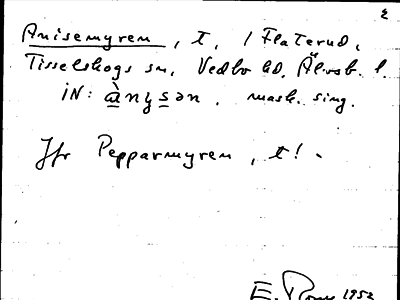 Anisemyren, t, i Flaterud,
Tisselskogs sn, Vedbo hd, Älvsb. l.
iN: ànysən. mask. sing.
Jfr Pepparmyren, t!.
E. 1952